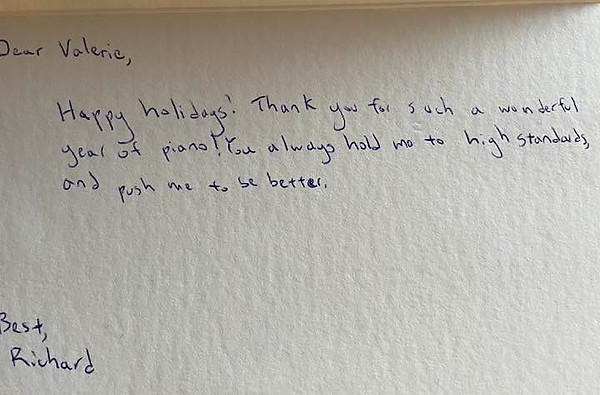 Dear Valerie,
Happy holidays! Thank you for such a wonderful
year of piano! You always hold me to high standards,
and push me to be better.
Best,
Richard